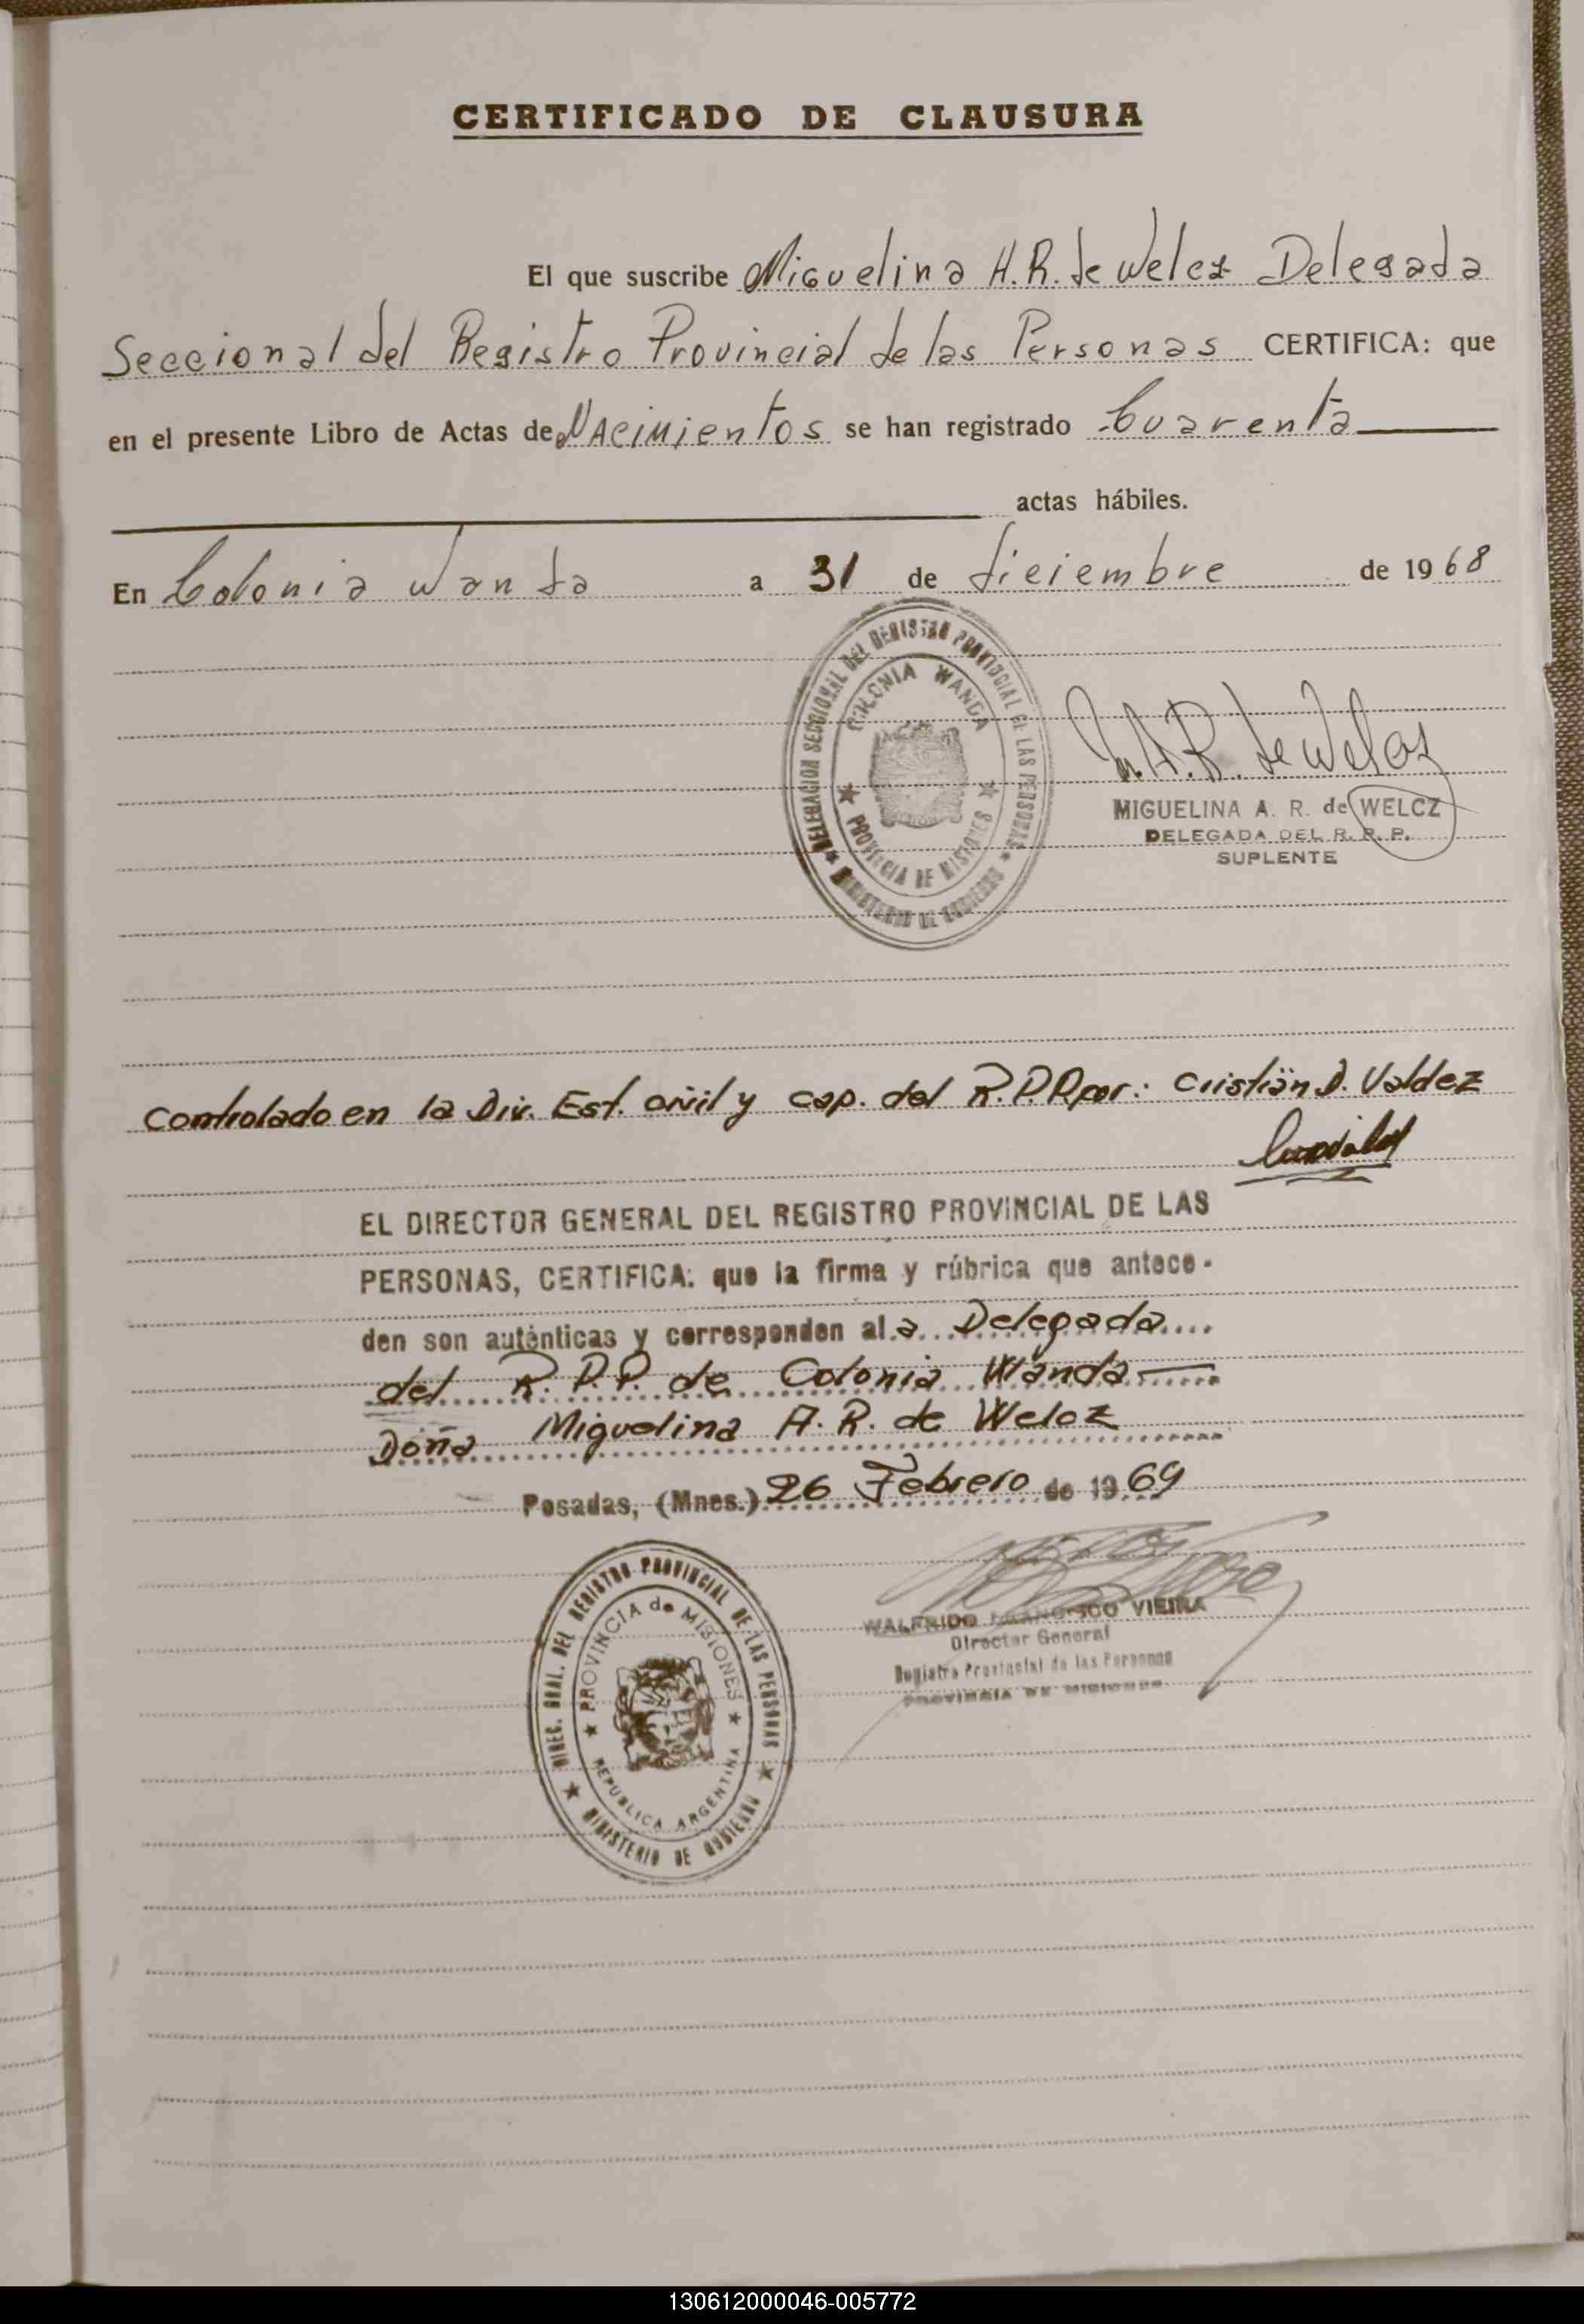 CERTIFICADO DE CLAUSURA
El que suscribe Miguelina A. R. de Welcz Delegada
Seccional del Registro Provincial de las Personas CERTIFICA: que
en el presente Libro de Actas de Nacimientos se han registrado Cuarenta
actas hábiles.
En Colonia Wanda a 31 de diciembre de 1968
DELEGACION SECCIONAL DEL REGISTRO PROVINCIAL DE LAS PERSONAS
COLONIA WANDA
PROVINCIA DE MISIONES
MINISTERIO DE GOBIERNO
M.A.R. de Welcz
MIGUELINA A. R. de WELCZ
DELEGADA DEL R. P. P.
SUPLENTE
Controlado en la Div. Est. civil y cap. del R.P.P por: Cristián D. Valdez
EL DIRECTOR GENERAL DEL REGISTRO PROVINCIAL DE LAS
PERSONAS, CERTIFICA: que la firma y rúbrica que antece-
den son auténticas y corresponden al a Delegada
del R. P. P. de Colonia Wanda
Doña Miguelina A. R. de Welcz
Posadas, (Mnes.) 26 Febrero de 1969
DIREC. GRAL. DEL REGISTRO PROVINCIAL DE LAS PERSONAS
PROVINCIA de MISIONES
REPUBLICA ARGENTINA
MINISTERIO DE GOBIERNO
WALFRIDO FRANCISCO VIEIRA
Director General
Registro Provincial de las Personas
PROVINCIA DE MISIONES
130612000046-005772